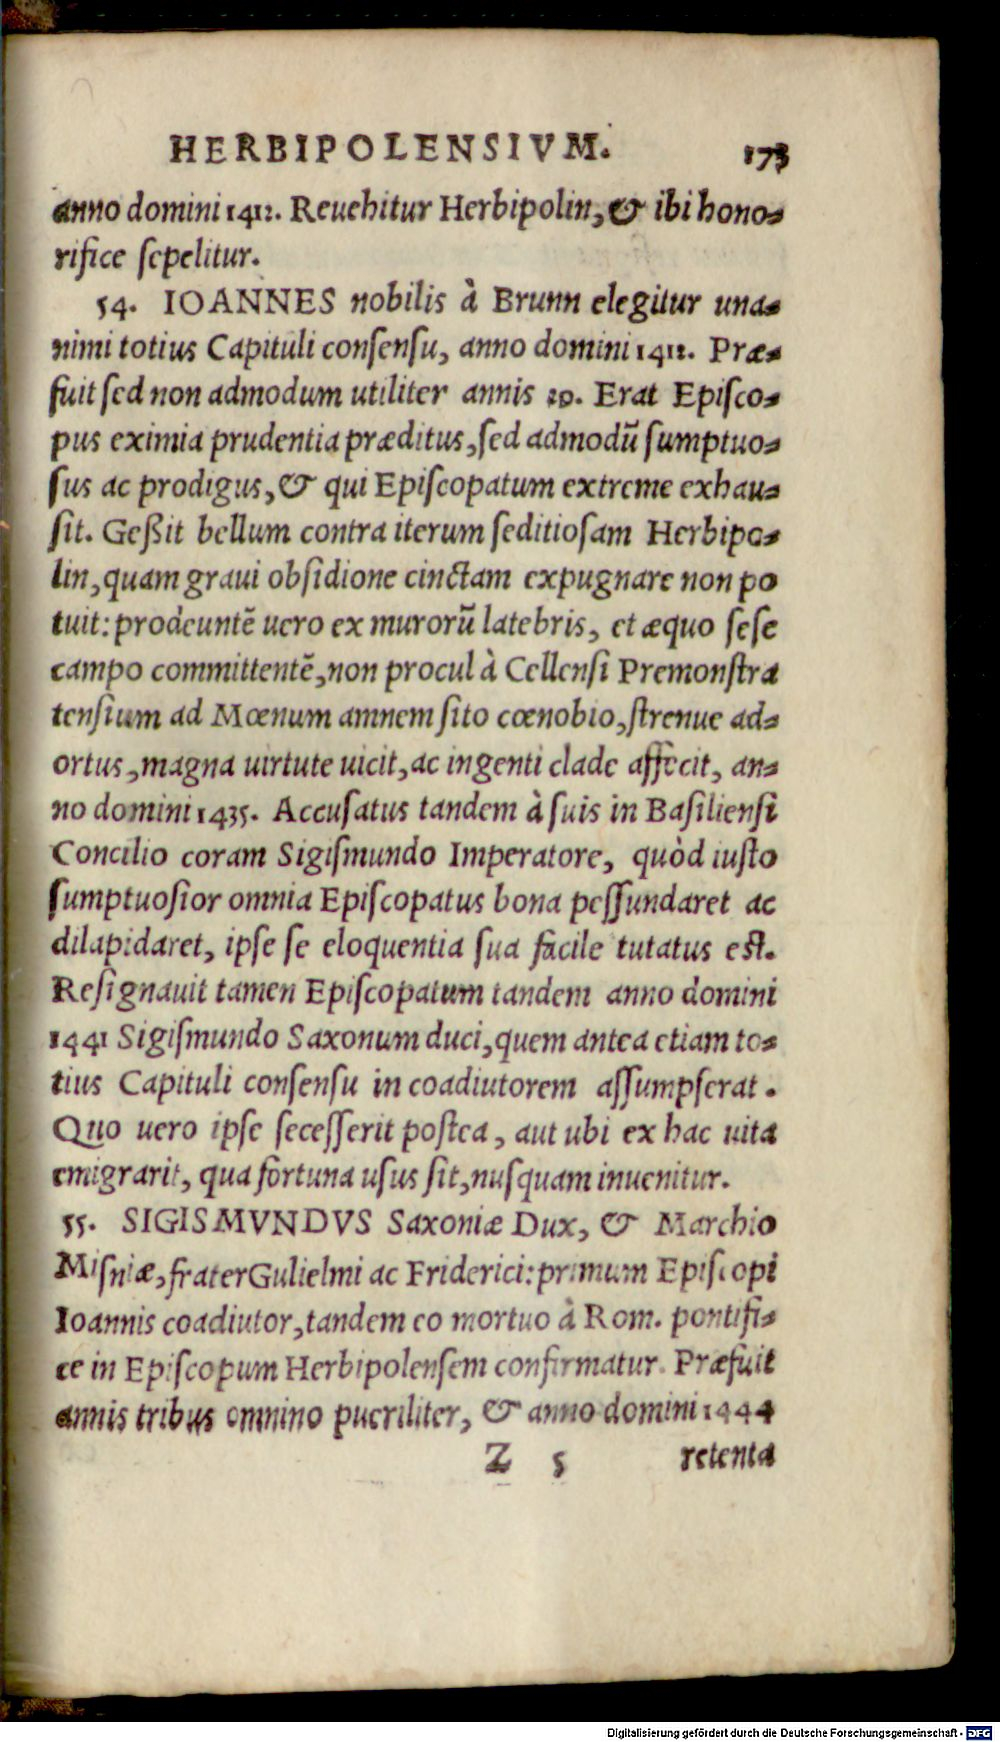 HERBIPOLENSIVM. 173
anno domini 1412. Reuehitur Herbipolin, & ibi hono-
rifice sepelitur.
54. IOANNES nobilis à Brunn elegitur una-
nimi totius Capituli consensu, anno domini 1412. Præ-
fuit sed non admodum utiliter annis 29. Erat Episco-
pus eximia prudentia præditus, sed admodũ sumptuo-
sus ac prodigus, & qui Episcopatum extreme exhau-
sit. Geßit bellum contra iterum seditiosam Herbipo-
lin, quam graui obsidione cinctam expugnare non po
tuit: prodeuntẽ uero ex murorũ latebris, et æquo sese
campo committentẽ, non procul à Cellensi Premonstra
tensium ad Mœnum amnem sito cœnobio, strenue ad-
ortus, magna uirtute uicit, ac ingenti clade affecit, an-
no domini 1435. Accusatus tandem à suis in Basiliensi
Concilio coram Sigismundo Imperatore, quòd iusto
sumptuosior omnia Episcopatus bona pessundaret ac
dilapidaret, ipse se eloquentia sua facile tutatus est.
Resignauit tamen Episcopatum tandem anno domini
1441 Sigismundo Saxonum duci, quem antea etiam to-
tius Capituli consensu in coadiutorem assumpserat.
Quo uero ipse secesserit postea, aut ubi ex hac uita
emigrarit, qua fortuna usus sit, nusquam inuenitur.
55. SIGISMVNDVS Saxoniæ Dux, & Marchio
Misniæ, frater Gulielmi ac Friderici: primum Episcopi
Ioannis coadiutor, tandem eo mortuo à Rom. pontifi-
ce in Episcopum Herbipolensem confirmatur. Præfuit
annis tribus omnino pueriliter, & anno domini 1444
Z 5 retenta
Digitalisierung gefördert durch die Deutsche Forschungsgemeinschaft - DFG